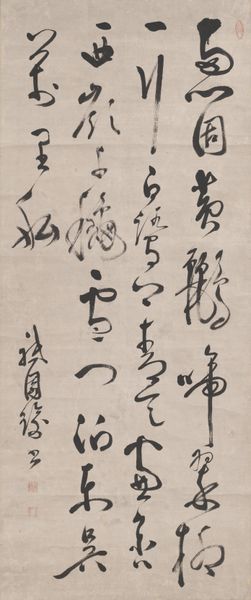 兩箇黃鸝啼翠柳
一行白鷺上青天窗含
西嶺千穐雪門泊東吳
萬里船
書